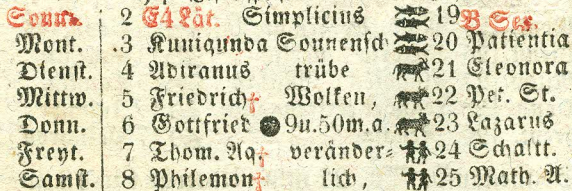 Sonn. 2 E4 Lät. Simplicius 19 B Sex.
Mont. 3 Kunigunda Sonnensch 20 Patientia
Dienst. 4 Adiranus trübe 21 Eleonora
Mittw. 5 Friedrich† Wolken, 22 Pet. St.
Donn. 6 Gottfried ● 9u.50m.a. 23 Lazarus
Freyt. 7 Thom. Aq† veränder= 24 Schaltt.
Samst. 8 Philemon† lich, 25 Math. A.